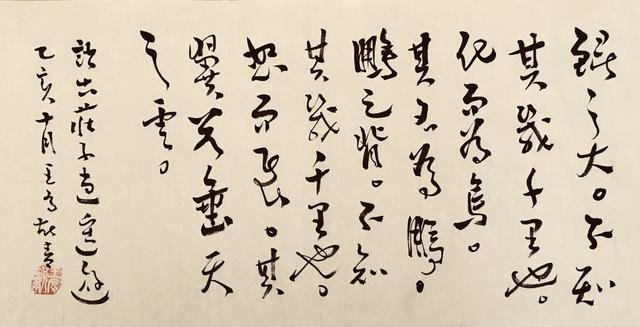 鯤之大。不知
其幾千里也。
化而為鳥。
其名為鵬。
鵬之背。不知
其幾千里也。
怒而飛。其
翼若垂天
之雲。
莊子逍遙遊
乙亥十月